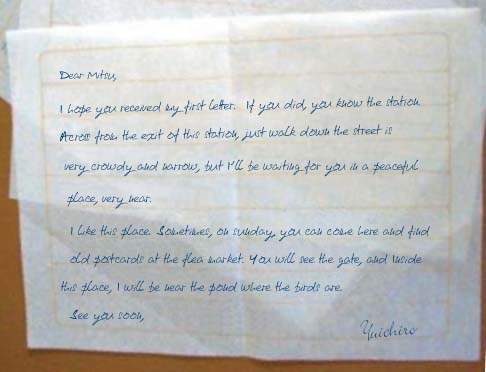 Dear Mitsu,
I hope you received my first letter. If you did, you know the station.
Across from the exit of this station, just walk down the street is
very crowdy and narrow, but I'll be waiting for you in a peaceful
place, very near.
I like this place. Sometimes, on sunday, you can come here and find
old postcards at the flea market. You will see the gate, and inside
this place, I will be near the pond where the birds are.
See you soon,
Yuichiro